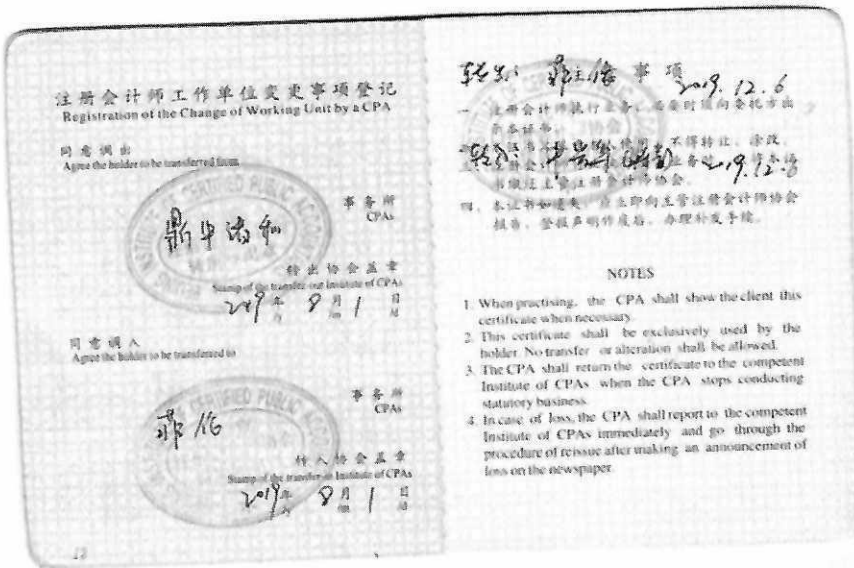 注册会计师工作单位变更事项登记
Registration of the Change of Working Unit by a CPA
同意调出
Agree the holder to be transferred from
事务所
CPAs
转出协会盖章
Stamp of the transfer-out Institute of CPAs
2019年 8月 1日
同意调入
Agree the holder to be transferred to
CERTIFIED PUBLIC
事务所
CPAs
转入协会盖章
Stamp of the transfer-in Institute of CPAs
2019年 8月 1日
12
事项
2019.12.6
一、注册会计师执行业务,必要时须向委托方出
示本证书。
不得转让、涂改。
2019.12.6
书缴还主管注册会计师协会。
四、本证书如遗失,应立即向主管注册会计师协会
报告,登报声明作废后,办理补发手续。
NOTES
1. When practising, the CPA shall show the client this
certificate when necessary.
2. This certificate shall be exclusively used by the
holder. No transfer or alteration shall be allowed.
3. The CPA shall return the certificate to the competent
Institute of CPAs when the CPA stops conducting
statutory business.
4. In case of loss, the CPA shall report to the competent
Institute of CPAs immediately and go through the
procedure of reissue after making an announcement of
loss on the newspaper.